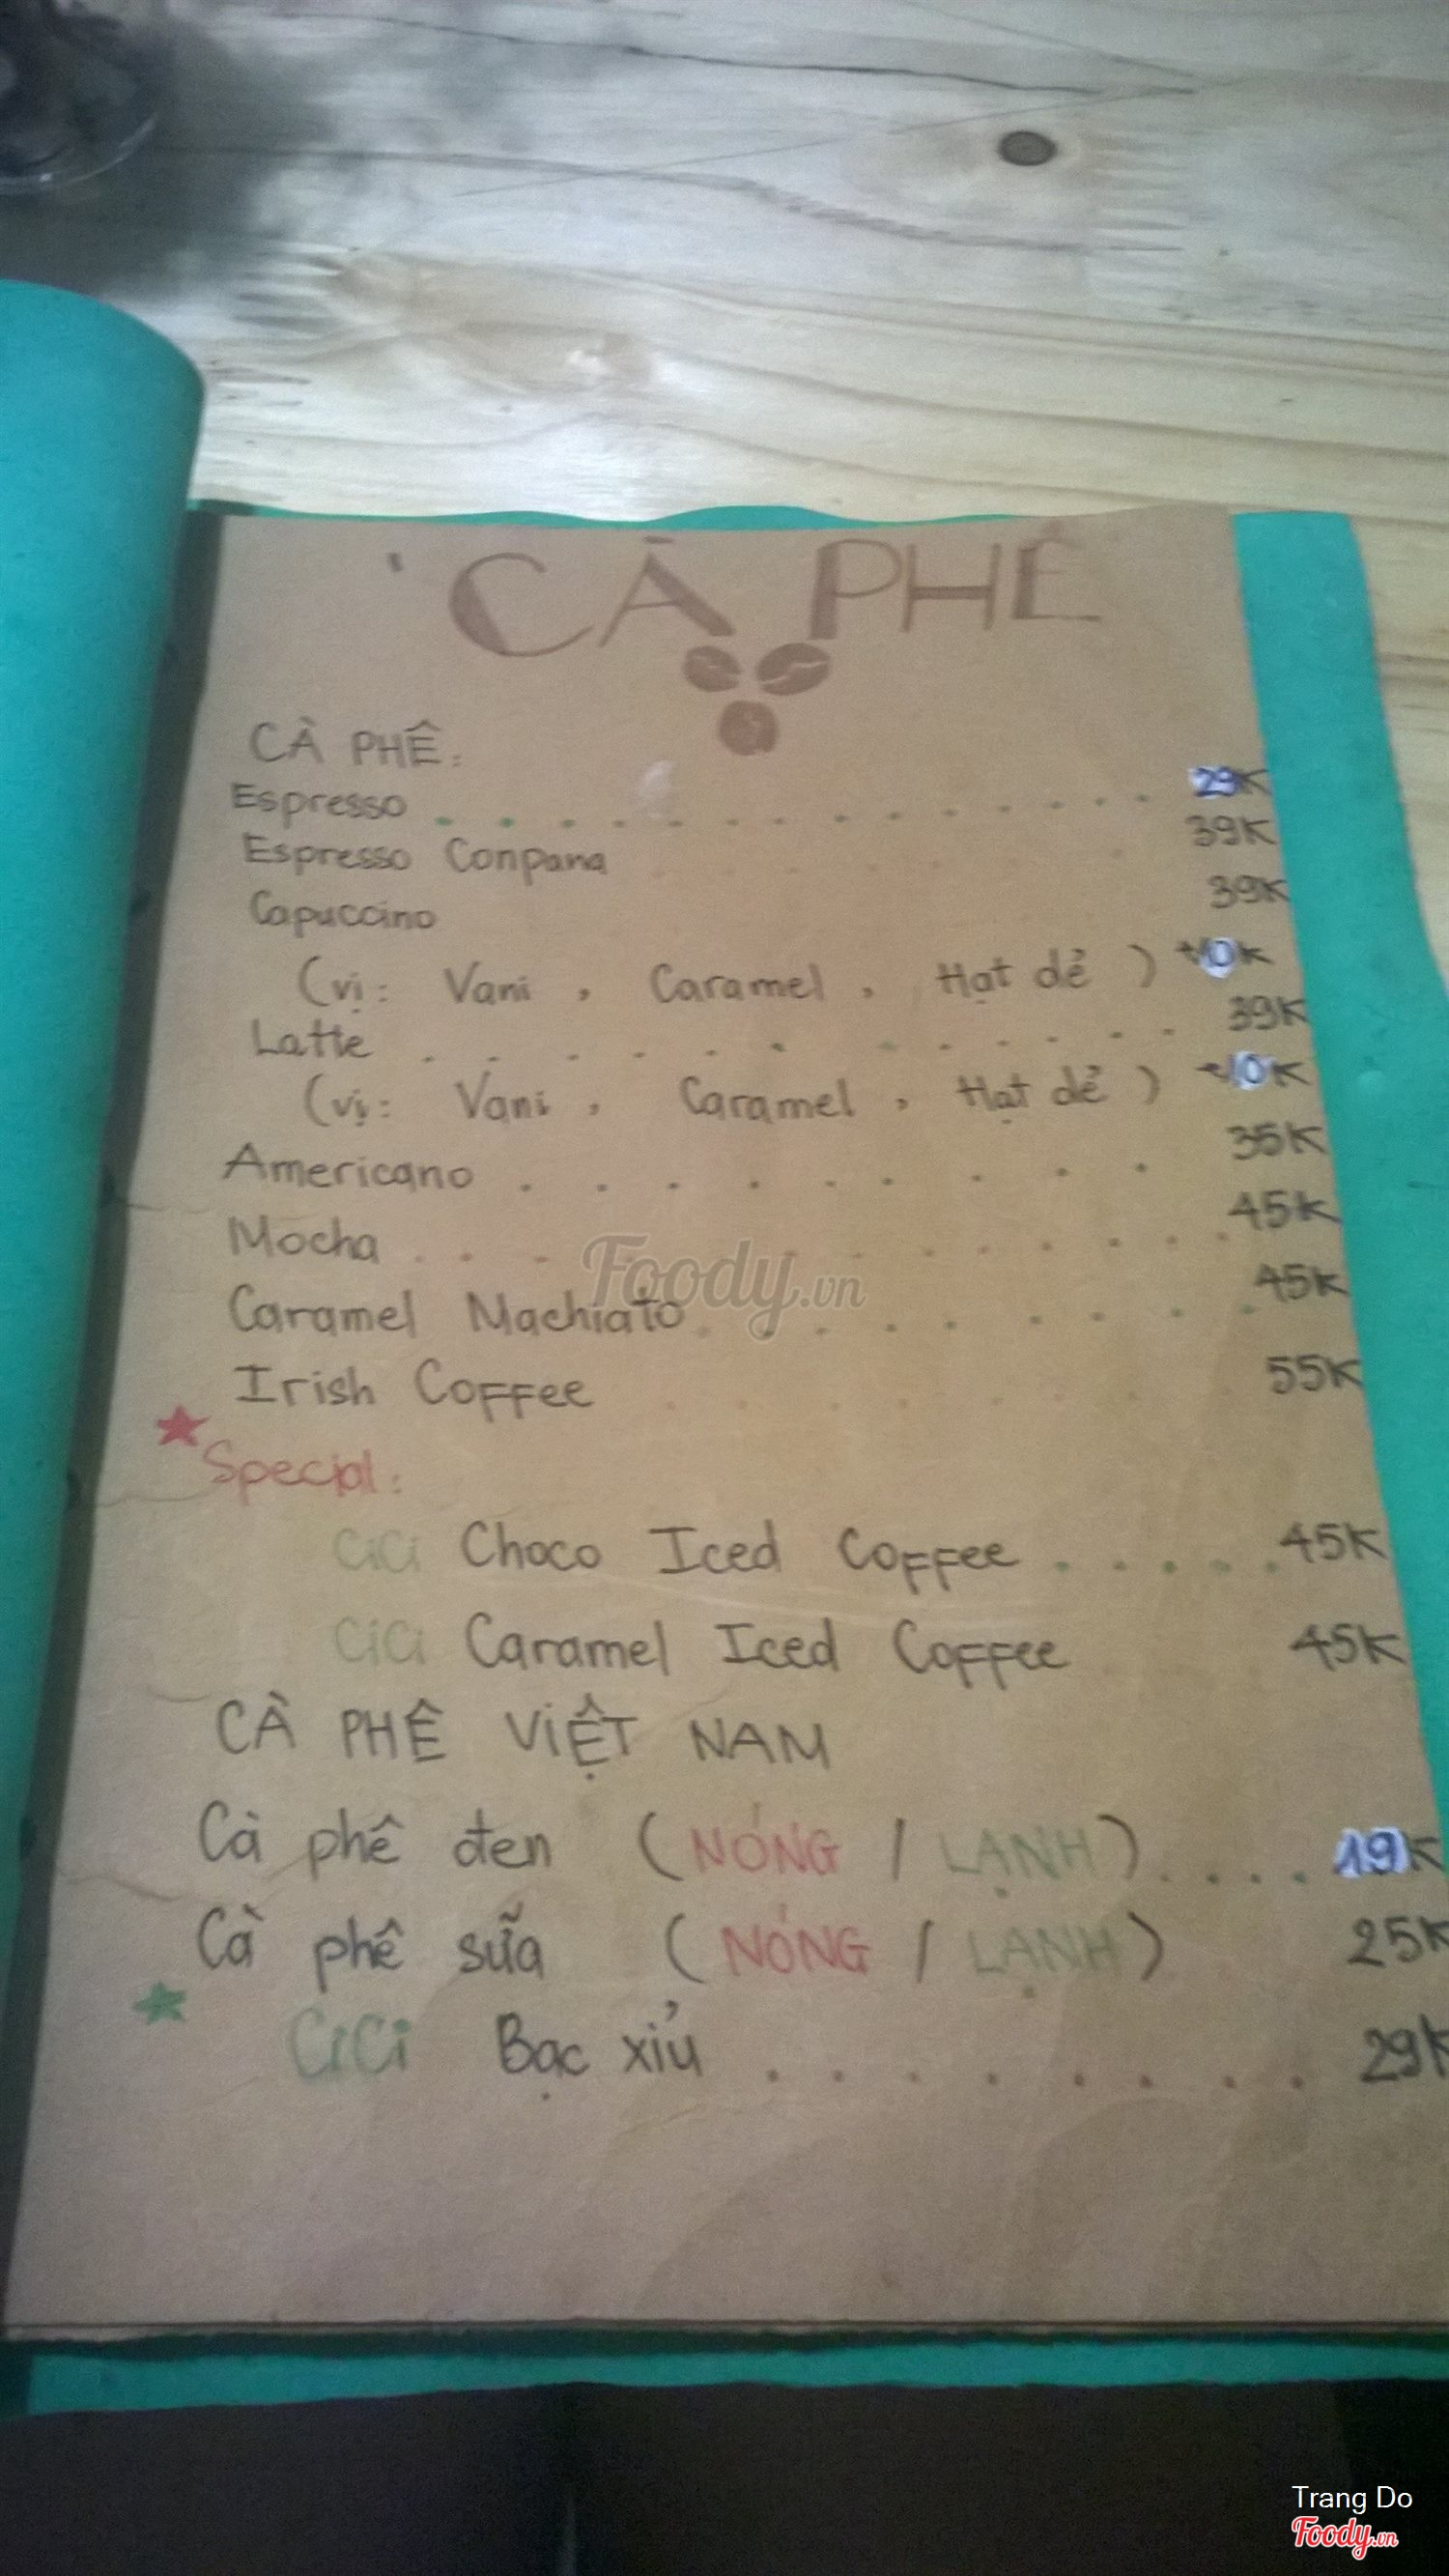 CÀ PHÊ
CÀ PHÊ:
Espresso . . . . . . . . . . . . . 29K
Espresso Conpana . . . . . . 39K
Capuccino 39K
(vị: Vani , Caramel , Hạt dẻ ) +10K
Latte . . . . . . . . . . . 39K
(vị: Vani , Caramel , Hạt dẻ ) +10K
Americano . . . . . . . . . 35K
Mocha . . . . . . . . . . . . 45K
Caramel Machiato . . . . . . . . . 45K
Irish Coffee . . . . . . . 55K
Special:
CiCi Choco Iced Coffee . . . . . 45K
CiCi Caramel Iced Coffee 45K
CÀ PHÊ VIỆT NAM
Cà phê đen (NÓNG / LẠNH) . . . . 19K
Cà phê sữa (NÓNG / LẠNH) 25K
CiCi Bạc xỉu . . . . . . . . 29K
Foody.vn
Trang Do
Foody.vn